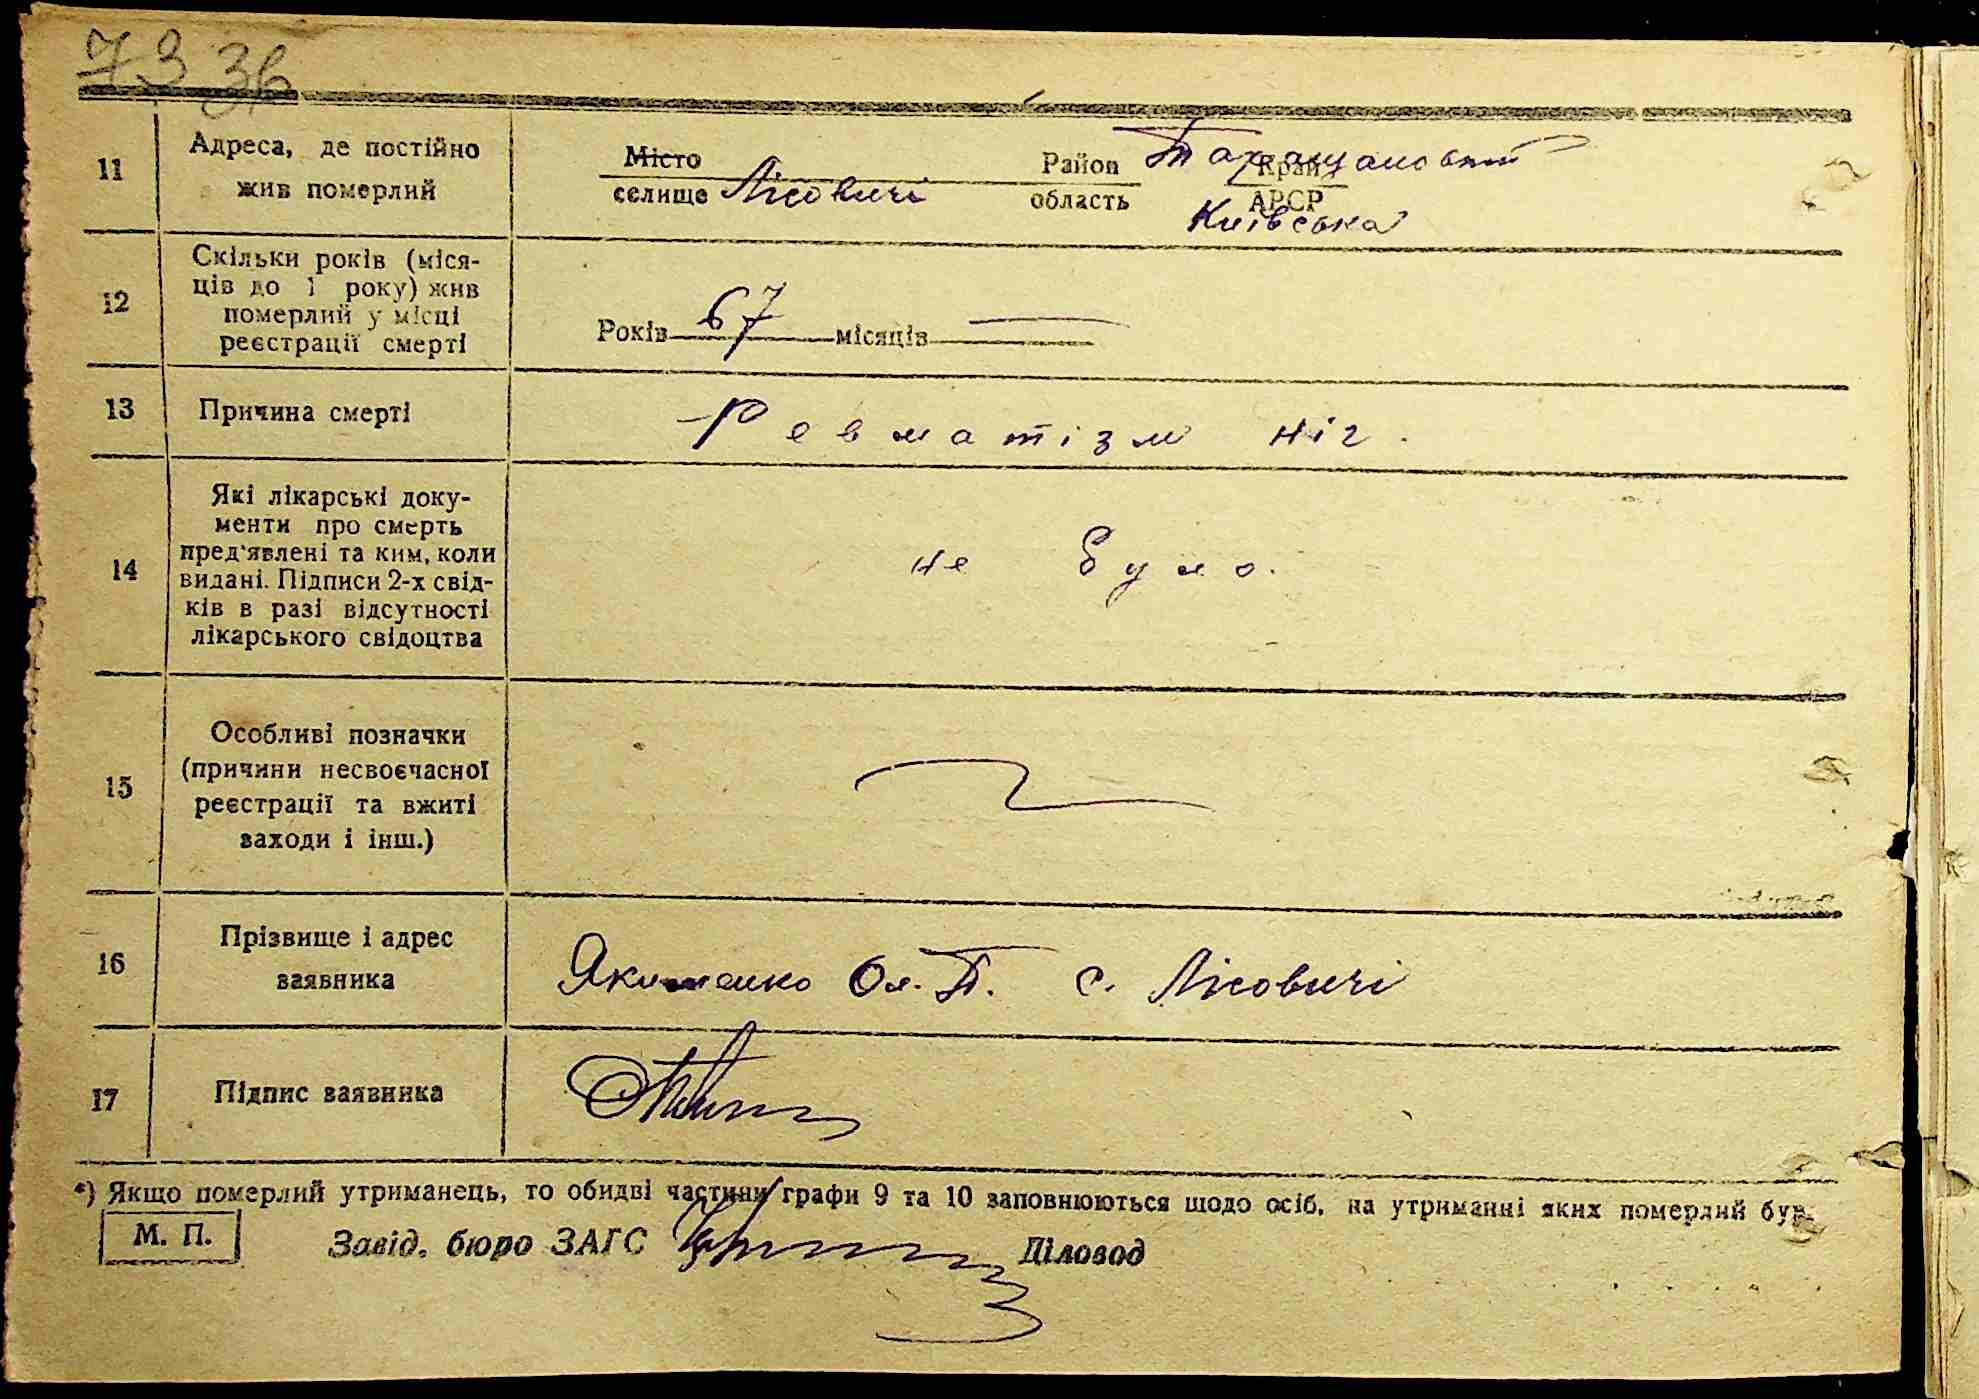 73 зв
11 Адреса, де постійно жив померлий Місто селище Лісовичі Район область Таращановський Край АРСР Київська
12 Скільки років (міся-
ців до 1 року) жив
померлий у місці
реєстрації смерті
Років 67 місяців —
13 Причина смерті Ревматізм ніг.
14 Які лікарські доку-
менти про смерть
пред'явлені та ким, коли
видані. Підписи 2-х свід-
ків в разі відсутності
лікарського свідоцтва
не було.
15 Особливі позначки
(причини несвоєчасної
реєстрації та вжиті
заходи і інш.)
16 Прізвище і адрес
заявника
Якименко Ол. П. с. Лісовичі
17 Підпис заявника
*) Якщо померлий утриманець, то обидві частини графи 9 та 10 заповнюються щодо осіб, на утриманні яких померлий був.
М. П. Завід. бюро ЗАГС Діловод